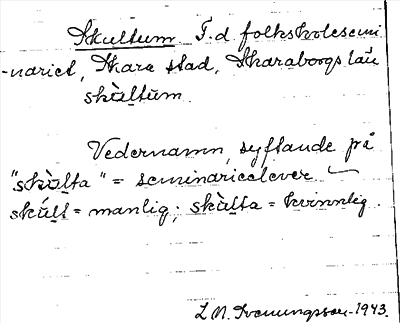 Skultum F.d folkskolesemi
-nariet, Skara stad, Skaraborgs län
skùltum.
Vedernamn, syftande på
"skùlta" = seminarieelever
skúlt = manlig; skùlta = kvinnlig.
L M. Svenungsson - 1943.